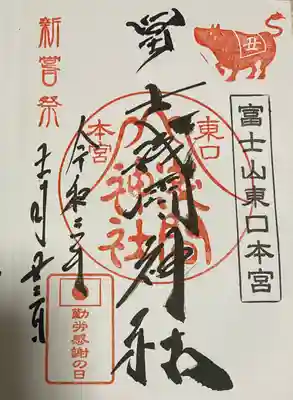 丑
富士山東口本宮
冨士浅間神社
東口
本宮
神社
令和二年
十一月廿三日
新嘗祭
勤労感謝の日